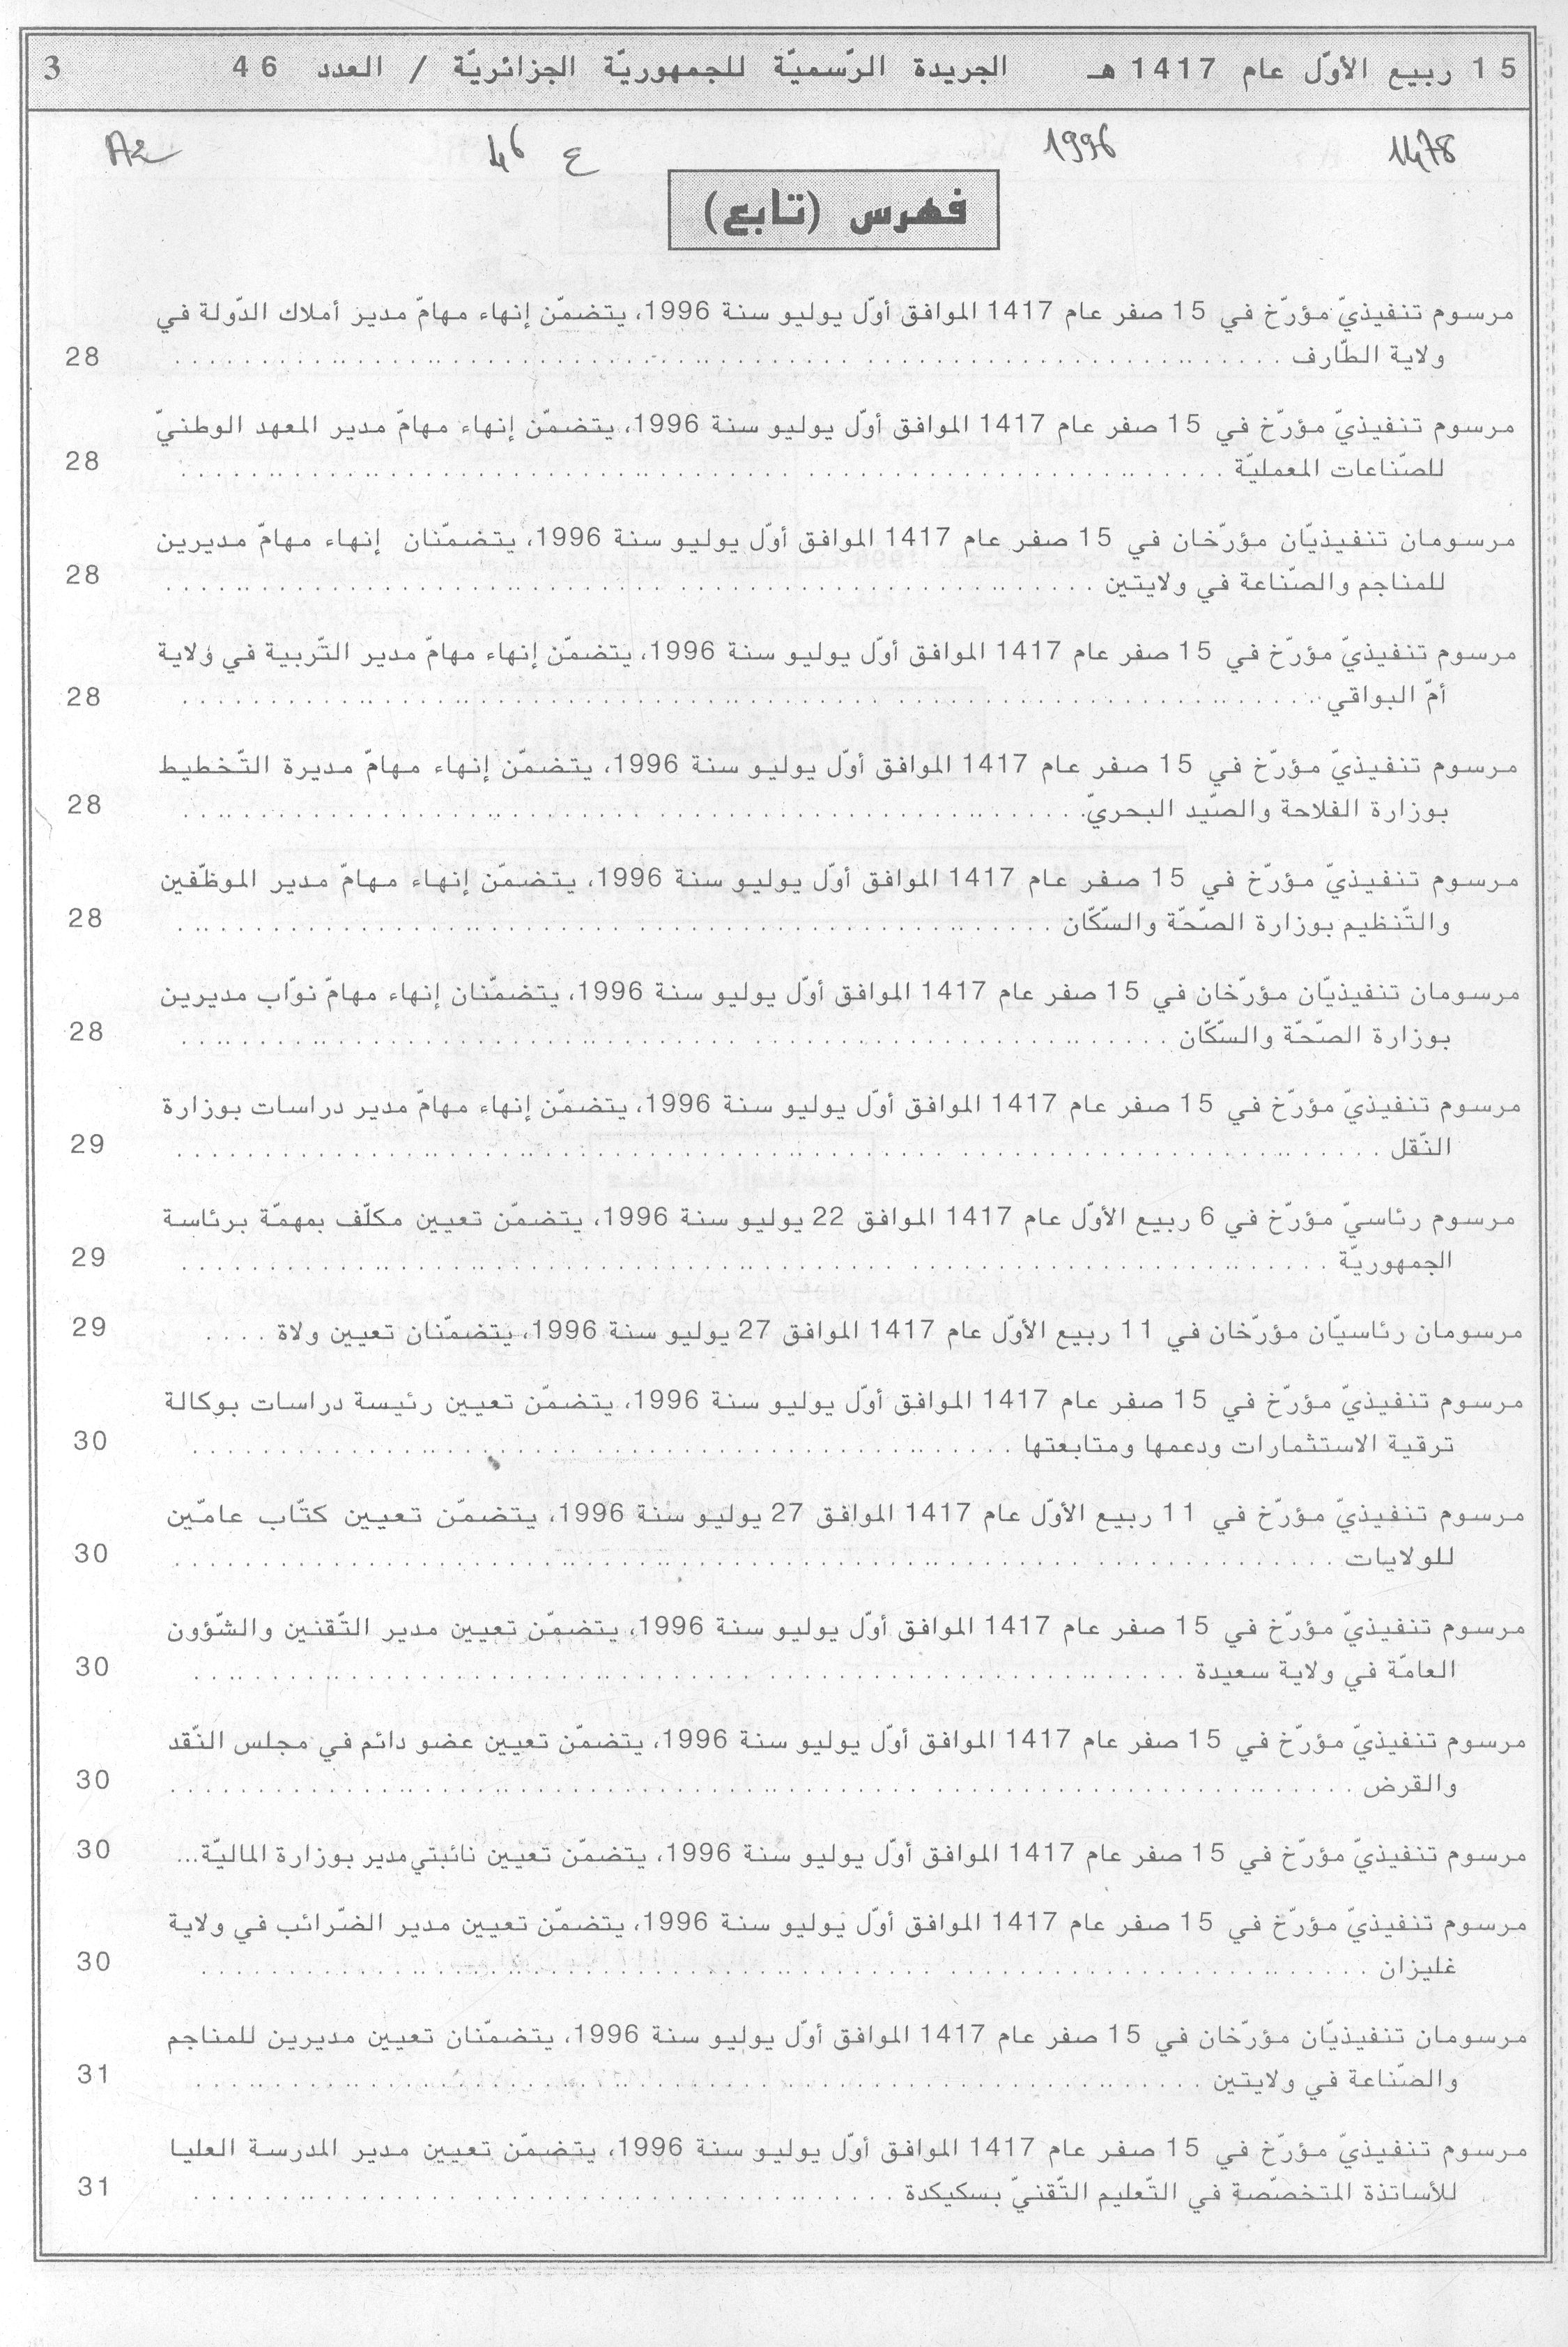 15 ربيع الأوّل عام 1417 هـ الجريدة الرّسميّة للجمهوريّة الجزائريّة / العدد 46 3
1478 1996 ع 46 A2
فهرس (تابع)
مرسوم تنفيذيّ مؤرّخ في 15 صفر عام 1417 الموافق أوّل يوليو سنة 1996، يتضمّن إنهاء مهامّ مدير أملاك الدّولة في
ولاية الطّارف 28
مرسوم تنفيذيّ مؤرّخ في 15 صفر عام 1417 الموافق أوّل يوليو سنة 1996، يتضمّن إنهاء مهامّ مدير المعهد الوطنيّ
للصّناعات المعمليّة 28
مرسومان تنفيذيّان مؤرّخان في 15 صفر عام 1417 الموافق أوّل يوليو سنة 1996، يتضمّنان إنهاء مهامّ مديرين
للمناجم والصّناعة في ولايتين 28
مرسوم تنفيذيّ مؤرّخ في 15 صفر عام 1417 الموافق أوّل يوليو سنة 1996، يتضمّن إنهاء مهامّ مدير التّربية في ولاية
أمّ البواقي 28
مرسوم تنفيذيّ مؤرّخ في 15 صفر عام 1417 الموافق أوّل يوليو سنة 1996، يتضمّن إنهاء مهامّ مديرة التّخطيط
بوزارة الفلاحة والصّيد البحريّ 28
مرسوم تنفيذيّ مؤرّخ في 15 صفر عام 1417 الموافق أوّل يوليو سنة 1996، يتضمّن إنهاء مهامّ مدير الموظّفين
والتّنظيم بوزارة الصّحّة والسّكّان 28
مرسومان تنفيذيّان مؤرّخان في 15 صفر عام 1417 الموافق أوّل يوليو سنة 1996، يتضمّنان إنهاء مهامّ نوّاب مديرين
بوزارة الصّحّة والسّكّان 28
مرسوم تنفيذيّ مؤرّخ في 15 صفر عام 1417 الموافق أوّل يوليو سنة 1996، يتضمّن إنهاء مهامّ مدير دراسات بوزارة
النّقل 29
مرسوم رئاسيّ مؤرّخ في 6 ربيع الأوّل عام 1417 الموافق 22 يوليو سنة 1996، يتضمّن تعيين مكلّف بمهمّة برئاسة
الجمهوريّة 29
مرسومان رئاسيّان مؤرّخان في 11 ربيع الأوّل عام 1417 الموافق 27 يوليو سنة 1996، يتضمّنان تعيين ولاة .... 29
مرسوم تنفيذيّ مؤرّخ في 15 صفر عام 1417 الموافق أوّل يوليو سنة 1996، يتضمّن تعيين رئيسة دراسات بوكالة
ترقية الاستثمارات ودعمها ومتابعتها 30
مرسوم تنفيذيّ مؤرّخ في 11 ربيع الأوّل عام 1417 الموافق 27 يوليو سنة 1996، يتضمّن تعيين كتّاب عامّين
للولايات 30
مرسوم تنفيذيّ مؤرّخ في 15 صفر عام 1417 الموافق أوّل يوليو سنة 1996، يتضمّن تعيين مدير التّقنين والشّؤون
العامّة في ولاية سعيدة 30
مرسوم تنفيذيّ مؤرّخ في 15 صفر عام 1417 الموافق أوّل يوليو سنة 1996، يتضمّن تعيين عضو دائم في مجلس النّقد
والقرض 30
مرسوم تنفيذيّ مؤرّخ في 15 صفر عام 1417 الموافق أوّل يوليو سنة 1996، يتضمّن تعيين نائبتي مدير بوزارة الماليّة... 30
مرسوم تنفيذيّ مؤرّخ في 15 صفر عام 1417 الموافق أوّل يوليو سنة 1996، يتضمّن تعيين مدير الضّرائب في ولاية
غليزان 30
مرسومان تنفيذيّان مؤرّخان في 15 صفر عام 1417 الموافق أوّل يوليو سنة 1996، يتضمّنان تعيين مديرين للمناجم
والصّناعة في ولايتين 31
مرسوم تنفيذيّ مؤرّخ في 15 صفر عام 1417 الموافق أوّل يوليو سنة 1996، يتضمّن تعيين مدير المدرسة العليا
للأساتذة المتخصّصة في التّعليم التّقنيّ بسكيكدة 31